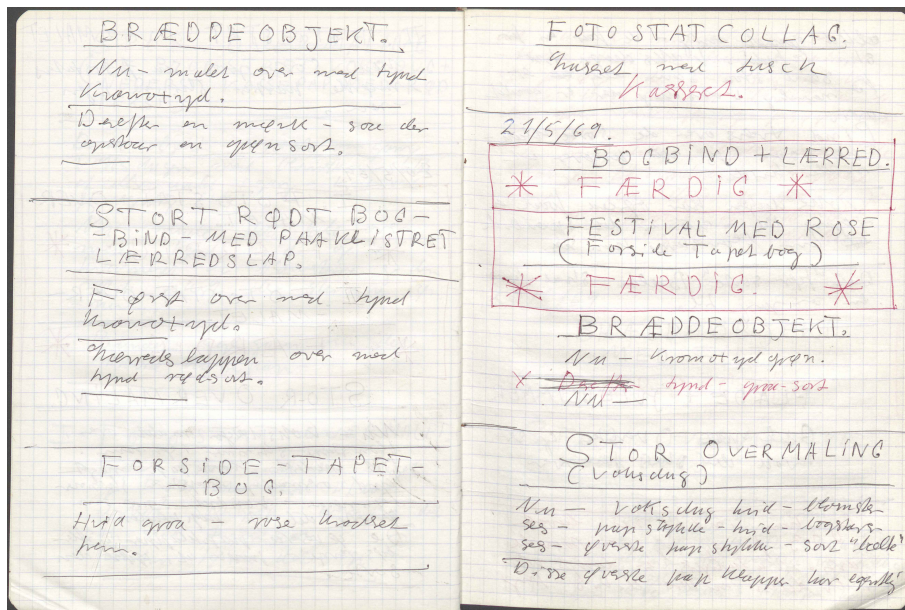 BRÆDDEOBJEKT.
Nu - malet over med tynd
Kromotyd.
Derefter en mørk - som der
opstaar en grøn sort.
STORT RØDT BOG-
-BIND - MED PAAKLISTRET
LÆRREDSLAP.
Først over med tynd
Kromotyd.
Lærredslappen over med
tynd rødsort.
FORSIDE - TAPET-
- BOG.
Hvid graa - rose
frem.
FOTOSTATCOLLAG.
med tusch
Kasseret.
21/5/69.
BOGBIND + LÆRRED.
* FÆRDIG *
FESTIVAL MED ROSE
(Forside Tapetbog)
* FÆRDIG. *
BRÆDDEOBJEKT.
Nu - Kromotyd grøn.
x Derefter tynd - graa-sort
NU -
STOR OVERMALING
(Voksdug)
Nu - Voksdug hvid - blomster
ses - pap stykke - hvid -
ses - øverste pap stykke - sort "
"Disse øverste pap klapper har egentlig